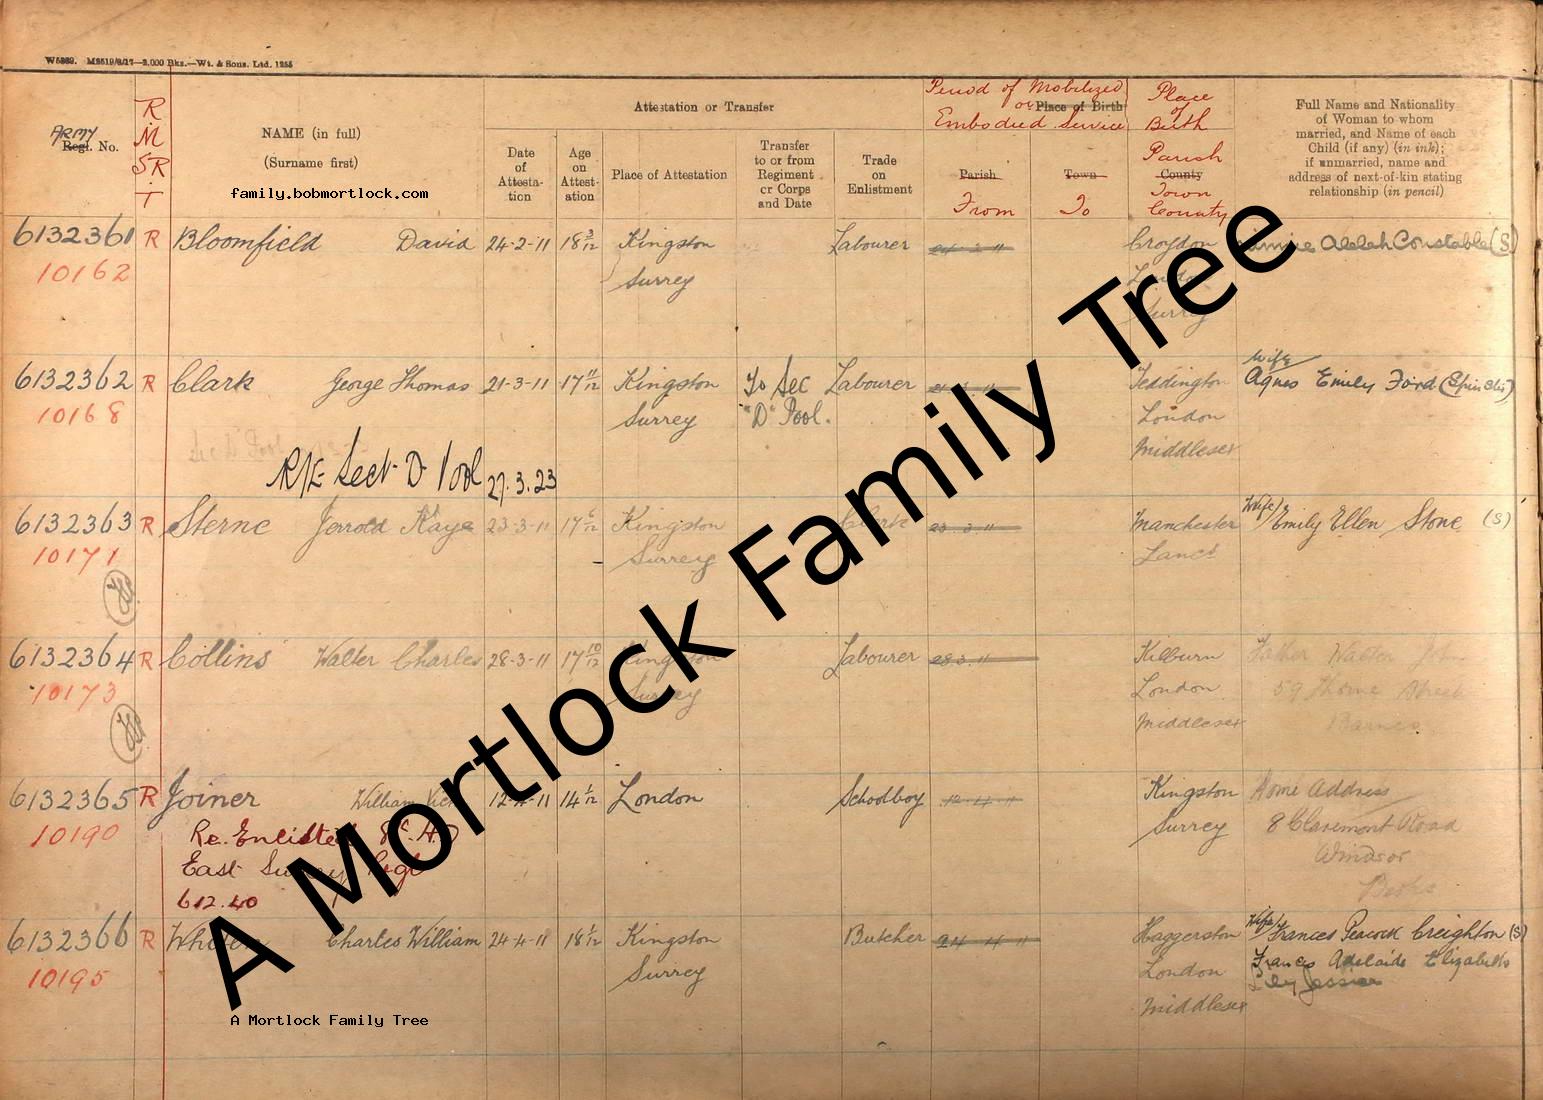 W5869. M2519/8/17—2,000 Bks.—Wt. & Sons. Ltd. 1255
ARMY
Regl. No.
R
M
SR
T
NAME (in full)
(Surname first)
family.bobmortlock.com
Attestation or Transfer
Date of Attestation
Age on Attestation
Place of Attestation
Transfer to or from Regiment or Corps and Date
Trade on Enlistment
Period of Mobilized
or Place of Birth
Embodied Service
Parish
Town
From
To
Place of Birth
Parish
County
Town
County
Full Name and Nationality
of Woman to whom
married, and Name of each
Child (if any) (in ink);
if unmarried, name and
address of next-of-kin stating
relationship (in pencil)
6132361 R Bloomfield David 24-2-11 18 3/12 Kingston Labourer 24 2 11 Croydon Constable (S)
10162 Surrey London
Surrey
Wife
6132362 R Clark George Thomas 21-3-11 17 11/12 Kingston To Sec Labourer 21 3 11 Teddington Agnes Emily Ford (Spinster)
10168 Surrey "D" Pool. London
Middlesex
Sect D Pool 27.3.23
6132363 R Sterne Jerrold Kaye 23-3-11 17 6/12 Kingston Clerk 23 3 11 Manchester Wife Emily Ellen Stone (S)
10171 Surrey Lancs
6132364 R Collins Walter Charles 28-3-11 17 10/12 Kingston Labourer 28 3 11 Kilburn Father Walter John
10173 Surrey London 59 Thorne Street
Middlesex Barnes
6132365 R Joiner William Vict 12-4-11 14 1/12 London Schoolboy 12 4 11 Kingston Home Address
10190 Re. Enlisted Surrey 8 Claremont Road
East Surrey Regt Windsor
6 12.40 Berks
6132366 R Charles William 24-4-11 18 1/12 Kingston Butcher 24 4 11 Haggerston Wife Frances Peacock Creighton (S)
10195 Surrey London Francis Adelaide Elizabeth
Middlesex Lily Jessie
A Mortlock Family Tree
A Mortlock Family Tree